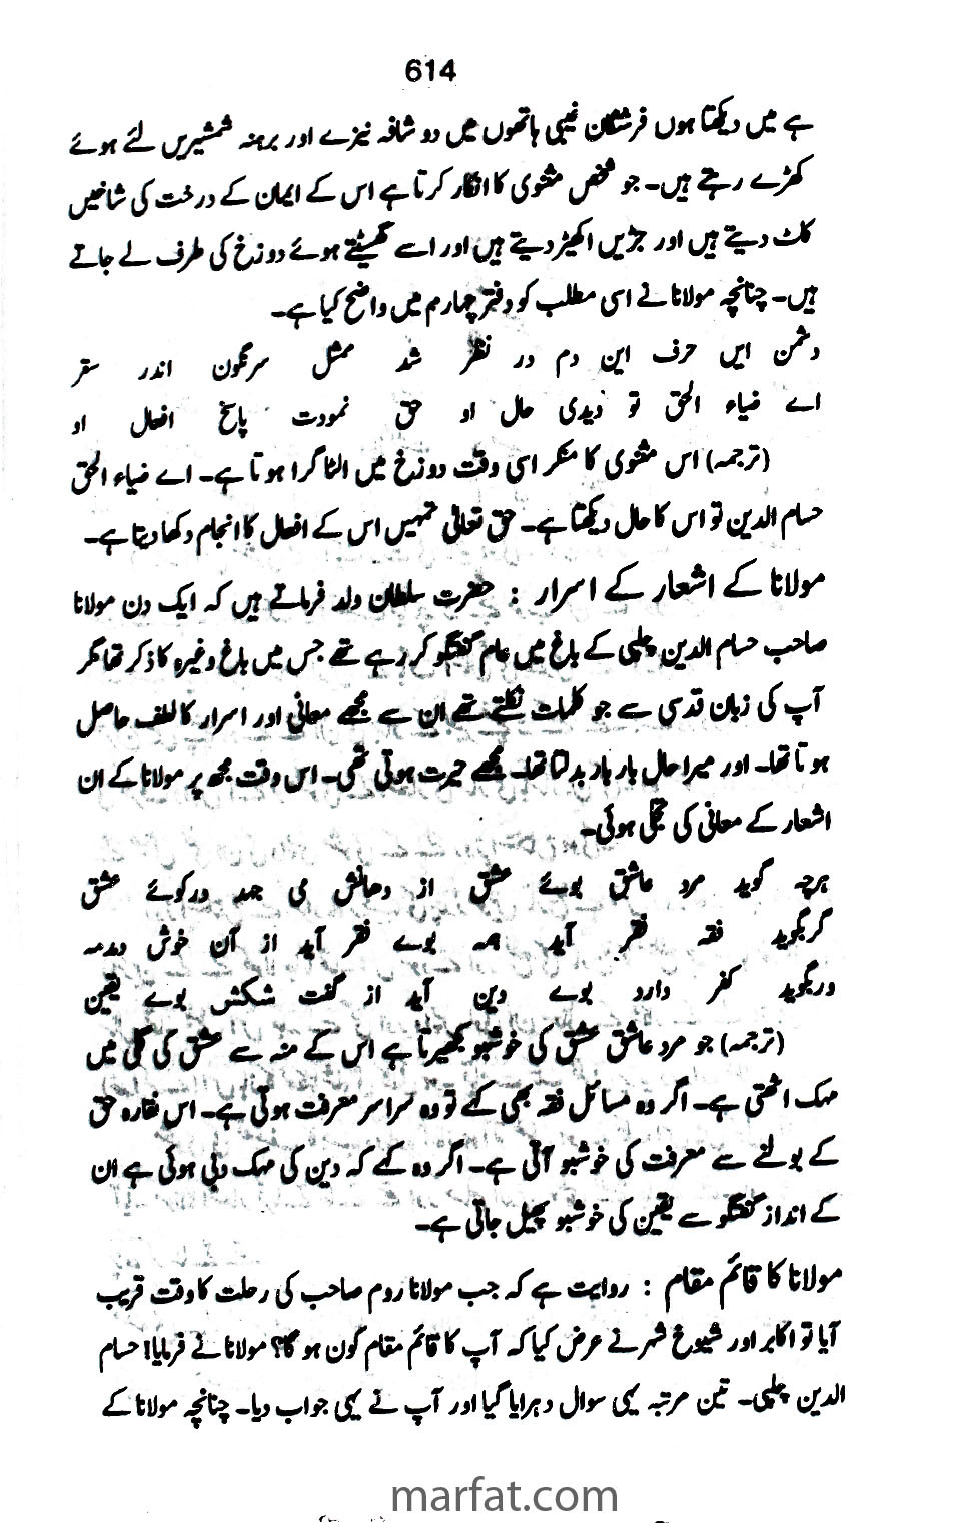 614
ہے میں دیکھتا ہوں فرشتگان غیبی ہاتھوں میں دو شاخہ نیزے اور برہنہ شمشیریں لئے ہوئے
کھڑے رہتے ہیں۔ جو شخص مثنوی کا انکار کرتا ہے اس کے ایمان کے درخت کی شاخیں
کاٹ دیتے ہیں اور جڑیں اکھیڑ دیتے ہیں اور اسے گھسیٹتے ہوئے دوزخ کی طرف لے جاتے
ہیں۔ چنانچہ مولانا نے اسی مطلب کو دفتر چہارم میں واضح کیا ہے۔
دشمن ایں حرف این دم در نظر شد ممثل سرنگون اندر سقر
اے ضیاء الحق تو دیدی حال او حق نمودت پاسخ افعال او
(ترجمہ) اس مثنوی کا منکر اسی وقت دوزخ میں الٹا گرا ہوتا ہے۔ اے ضیاء الحق
حسام الدین تو اس کا حال دیکھتا ہے۔ حق تعالیٰ تمہیں اس کے افعال کا انجام دکھا دیتا ہے۔
مولانا کے اشعار کے اسرار : حضرت سلطان ولد فرماتے ہیں کہ ایک دن مولانا
صاحب حسام الدین چلپی کے باغ میں عام گفتگو کر رہے تھے جس میں باغ وغیرہ کا ذکر تھا مگر
آپ کی زبان قدسی سے جو کلمات نکلتے تھے ان سے مجھے معانی اور اسرار کا لطف حاصل
ہوتا تھا۔ اور میرا حال بار بار بدلتا تھا۔ مجھے حیرت ہوتی تھی۔ اس وقت مجھ پر مولانا کے ان
اشعار کے معانی کی تجلی ہوئی۔
ہرچہ گوید مرد عاشق بوئے عشق از دھانش می جہد درکوئے عشق
گربگوید فقہ فقر آید ہمہ بوے فقر آید از آن خوش دمدمہ
وربگوید کفر دارد بوے دین آید از گفت شکش بوے یقین
(ترجمہ) جو مرد عاشق عشق کی خوشبو بکھیرتا ہے اس کے منہ سے عشق کی گلی میں
مہک اٹھتی ہے۔ اگر وہ مسائل فقہ بھی کہے تو وہ سراسر معرفت ہوتی ہے۔ اس نقارہ حق
کے بولنے سے معرفت کی خوشبو آتی ہے۔ اگر وہ کہے کہ دین کی مہک دبی ہوئی ہے ان
کے انداز گفتگو سے یقین کی خوشبو پھیل جاتی ہے۔
مولانا کا قائم مقام : روایت ہے کہ جب مولانا روم صاحب کی رحلت کا وقت قریب
آیا تو اکابر اور شیوخ شہر نے عرض کیا کہ آپ کا قائم مقام کون ہو گا؟ مولانا نے فرمایا! حسام
الدین چلپی۔ تین مرتبہ یہی سوال دہرایا گیا اور آپ نے یہی جواب دیا۔ چنانچہ مولانا کے
marfat.com